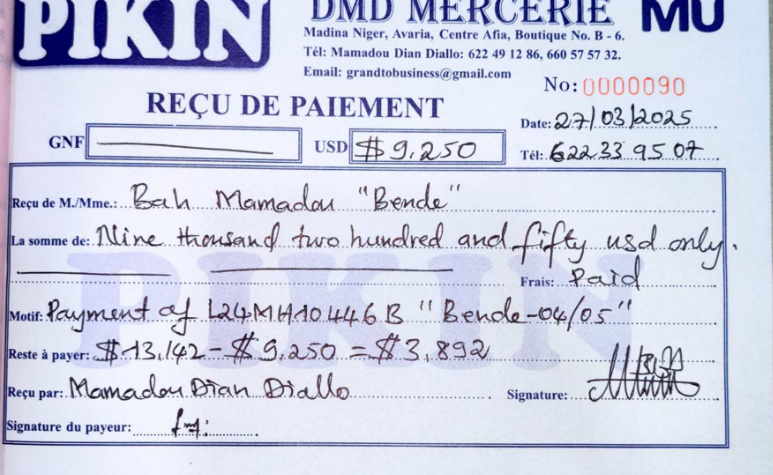 PIKIN
DMD MERCERIE MU
Madina Niger, Avaria, Centre Afia, Boutique No. B - 6.
Tél: Mamadou Dian Diallo: 622 49 12 86, 660 57 57 32.
Email: grandtobusiness@gmail.com
No: 0000090
REÇU DE PAIEMENT
Date: 27/03/2025
GNF USD $ 9,250
Tél: 622 33 95 07
Reçu de M./Mme.: Bah Mamadou "Bende"
La somme de: Nine thousand two hundred and fifty usd only.
PIKIN
Frais: Paid
Motif: Payment of L24MH10446B "Bende-04/05"
Reste à payer: $13,142 - $9,250 = $3,892
Reçu par: Mamadou Dian Diallo Signature:
Signature du payeur: